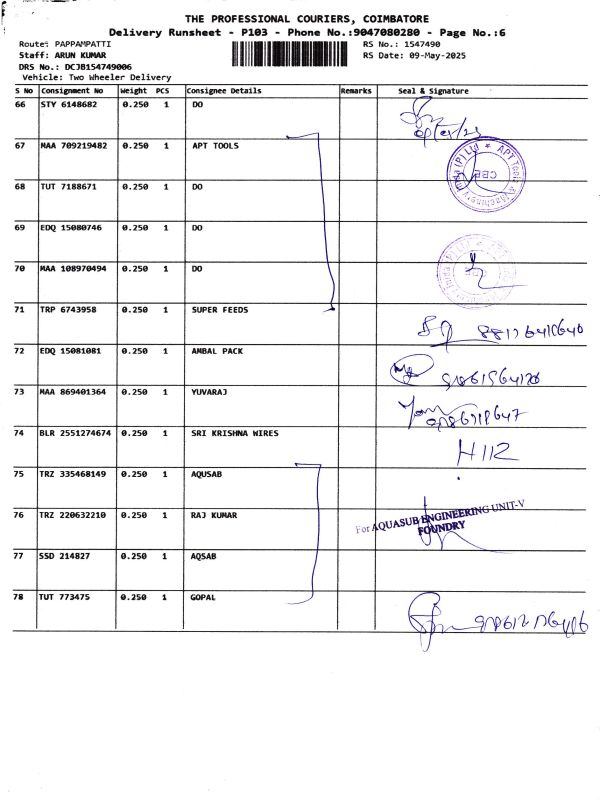 THE PROFESSIONAL COURIERS, COIMBATORE
Delivery Runsheet - P103 - Phone No.:9047080280 - Page No.:6
Route: PAPPAMPATTI RS No.: 1547490
Staff: ARUN KUMAR RS Date: 09-May-2025
DRS No.: DCJB154749006
Vehicle: Two Wheeler Delivery
S No Consignment No Weight PCS Consignee Details Remarks Seal & Signature
66 STY 6148682 0.250 1 DO
67 MAA 709219482 0.250 1 APT TOOLS
68 TUT 7188671 0.250 1 DO
CBE
69 EDQ 15080746 0.250 1 DO
70 MAA 108970494 0.250 1 DO
71 TRP 6743958 0.250 1 SUPER FEEDS
72 EDQ 15081081 0.250 1 AMBAL PACK
73 MAA 869401364 0.250 1 YUVARAJ
74 BLR 2551274674 0.250 1 SRI KRISHNA WIRES
H112
75 TRZ 335468149 0.250 1 AQUSAB
76 TRZ 220632210 0.250 1 RAJ KUMAR
For AQUASUB ENGINEERING UNIT-V
FOUNDRY
77 SSD 214827 0.250 1 AQSAB
78 TUT 773475 0.250 1 GOPAL